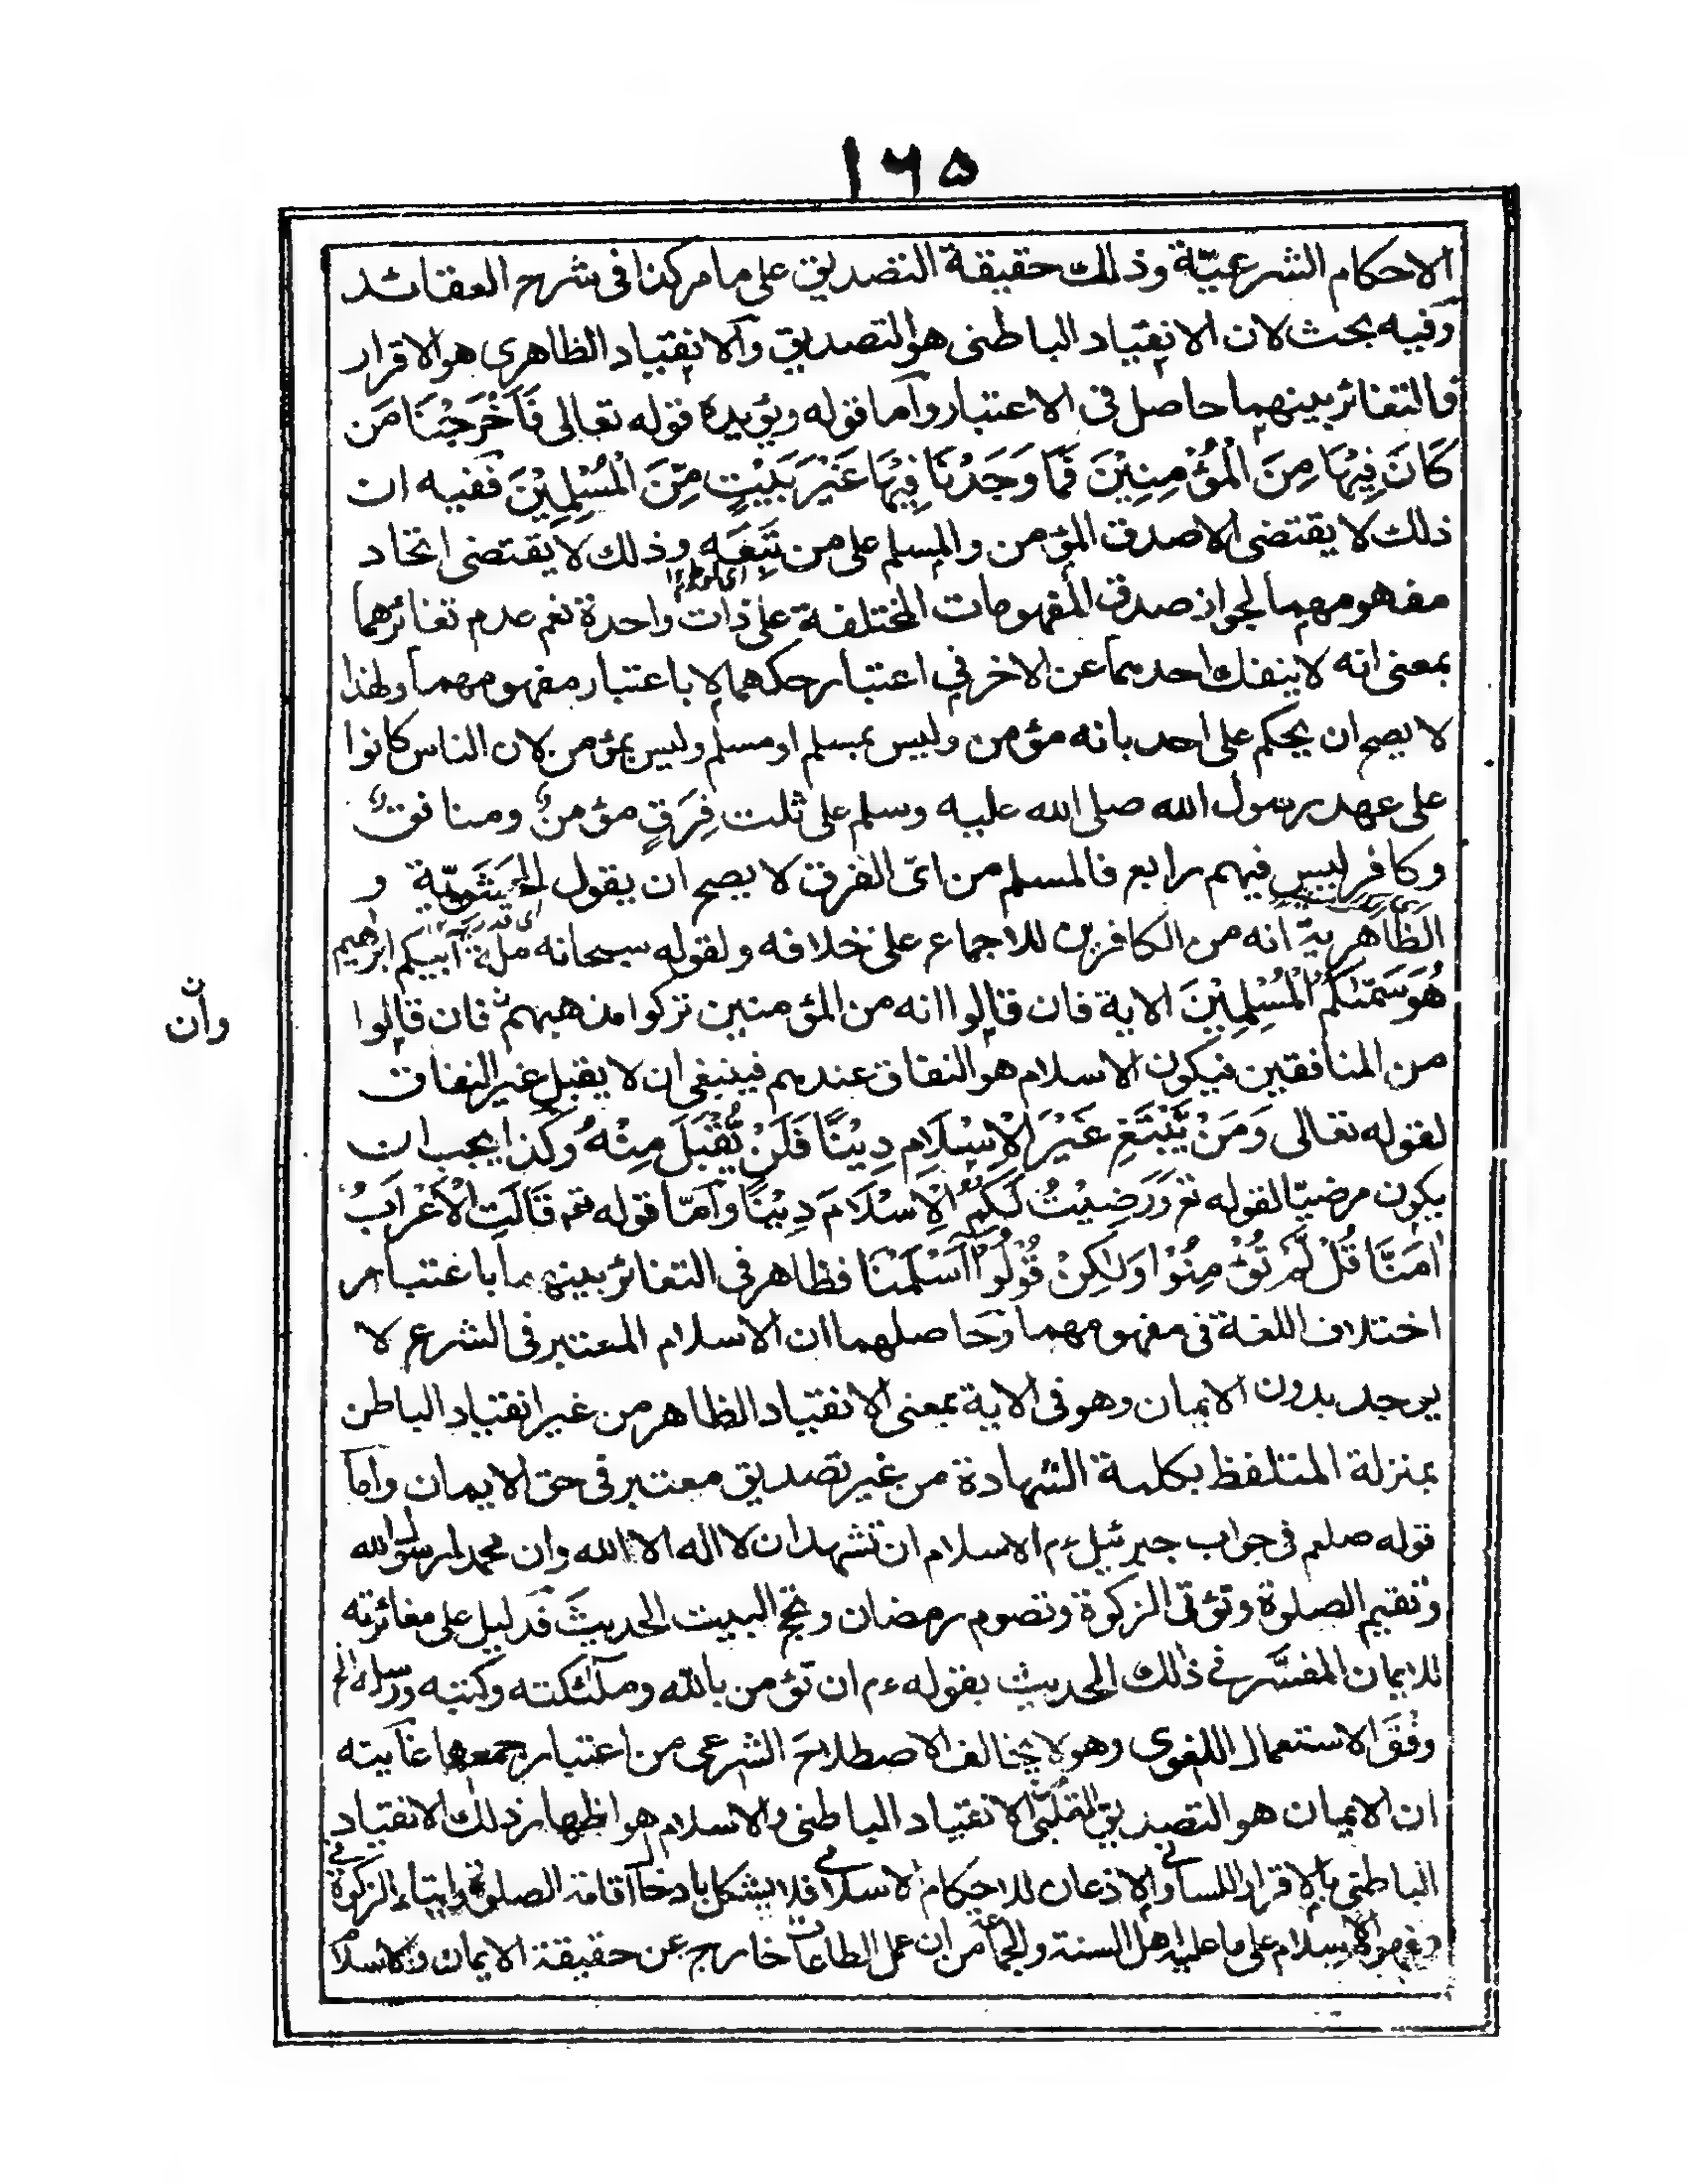 ١٦٥
الاحكام الشرعيّة وذلك حقيقة التصديق على ما مر كذا فى شرح العقائد
وفيه بحث لان الانقياد الباطنى هو التصديق والانقياد الظاهرى هو الاقرار
فالتغائر بينهما حاصل فى الاعتبار وآما قوله ويؤيده قوله تعالى فَاَخْرَجْنَا مَن
كَانَ فِيْهَا مِنَ الْمُؤْمِنِيْنَ فَمَا وَجَدْنَا فِيْهَا غَيْرَ بَيْتٍ مِّنَ الْمُسْلِمِيْنَ ففيه ان
ذلك لا يقتضى الا صدق المؤمن والمسلم على من تَبِعَه وذلك لا يقتضى اتحاد
مفهومهما لجواز صدق المفهومات المختلفة على ذات واحدة نعم عدم تغائرهما
بمعنى انه لا ينفك احدهما عن الاخر فى اعتبار حكمهما لا باعتبار مفهومهما ولهذا
لا يصح ان يحكم على احد بانه مؤمن وليس بمسلم او مسلم وليس بمؤمن لان الناس كانوا
على عهد رسول الله صلى الله عليه وسلم على ثلث فِرَقٍ مؤمنٌ ومنافقٌ
وكافر ليس فيهم رابع فالمسلم من اىّ الفرق لا يصح ان يقول الحَشَوِيّة و
الظاهرية انه من الكافرين للاجماع على خلافه ولقوله سبحانه ملة آبيكم ابرهيم
هُوَ سَمّٰىكُمُ الْمُسْلِمِيْنَ الاية فان قالوا انه من المؤمنين تركوا مذهبهم فان قالوا
وان
من المنافقين فيكون الاسلام هو النفاق عندهم فينبغى ان لا يقبل غير النفاق
لقوله تعالى وَمَنْ يَّبْتَغِ غَيْرَ الْاِسْلَامِ دِيْنًا فَلَنْ يُّقْبَلَ مِنْهُ وكذا يجب ان
يكون مرضيّا لقوله تع وَرَضِيْتُ لَكُمُ الْاِسْلَامَ دِيْنًا وآمّا قوله تع قَالَتِ الْاَعْرَابُ
اٰمَنَّا قُلْ لَّمْ تُؤْمِنُوْا وَلٰكِنْ قُوْلُوْا اَسْلَمْنَا فظاهر فى التغائر بينهما باعتبار
اختلاف اللغة فى مفهومهما وحاصلهما ان الاسلام المعتبر فى الشرع لا
يوجد بدون الايمان وهو فى الاية بمعنى الانقياد الظاهر من غير انقياد الباطن
بمنزلة المتلفظ بكلمة الشهادة من غير تصديق معتبر فى حق الايمان وآما
قوله صلعم فى جواب جبرئيل ءم الاسلام ان تشهد ان لا اله الا الله وان محمدا رسول الله
وتقيم الصلوة وتؤتى الزكوة وتصوم رمضان وتحج البيت الحديث فدليل على مغائرته
للايمان المفسَّر فى ذلك الحديث بقوله ءم ان تؤمن بالله وملٰئكته وكتبه ورسله الخ
وفْقَ الاستعمال اللغوى وهو لا يخالف الاصطلاح الشرعى من اعتبار جمعهما غايته
ان الايمان هو التصديق القلبى الانقياد الباطنى والاسلام هو اظهار ذلك الانقياد
الباطنى بالاقرار اللسانى والاذعان للاحكام الاسلامى فلا يشكل بادخال اقامة الصلوة وايتاء الزكوة فى
الاسلام على ما عليه اهل السنة والجماعة من ان عمل الطاعات خارج عن حقيقة الايمان والاسلام